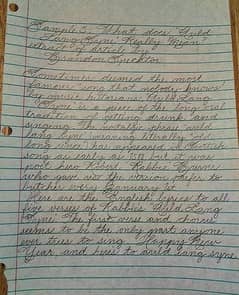 Sample 3 - What does "Auld
Lang Syne" Really Mean
extract of article by
Brandon Specktor
Sometimes deemed the most
famous song that nobody knows
the lyrics to "Auld Lang
Syne" is a of the
tradition of getting drunk and
singing. The phrase "auld
lang syne" meaning literally "old
long since" has appeared in Scottish
song as early as 1588, but it was
poet Robbie Burns
who gave us the version to
butcher every January 1st.
Here are the English lyrics to all
five verses of Rabbie's "Auld Lang
Syne." The first verse and chorus
seems to be the only part anyone
ever tries to sing. Happy New
Year, and here's to auld lang syne.